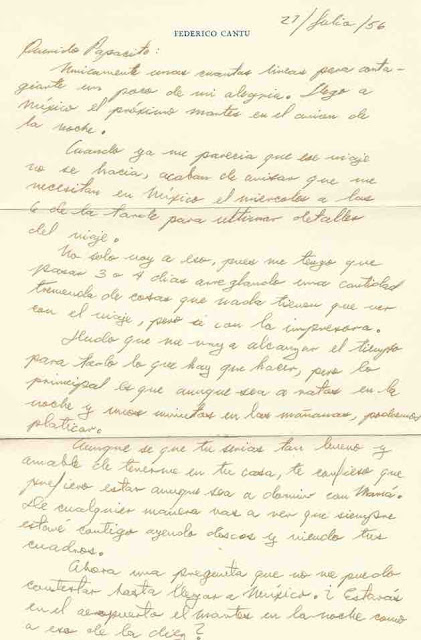 27/Julio/56
FEDERICO CANTU
Querido Papacito:
Unicamente unas cuantas lineas para conta-
giarte un poco de mi alegria. Llego a
México el próximo martes en el avion de
la noche.
Cuando ya me parecia que ese viaje
no se hacia, acaban de avisar que me
necesitan en México el miercoles a las
6 de la tarde para ultimar detalles
del viaje.
No solo voy a eso, pues me tengo que
pasar 3 o 4 dias arreglando una cantidad
tremenda de cosas que nada tienen que ver
con el viaje, pero si con la impresora.
Dudo que me vaya a alcanzar el tiempo
para tanto lo que hay que hacer, pero lo
principal es que aunque sea a ratos en la
noche y unos minutos en las mañanas, podremos
platicar.
Aunque se que tu serias tan bueno y
amable de tenerme en tu casa, te confieso que
prefiero estar aunque sea a dormir con Mamá.
De cualquier manera vas a ver que siempre
estaré contigo oyendo discos y viendo tus
cuadros.
Ahora una pregunta que no me puedo
contestar hasta llegar a México. ¿Estarás
en el aeropuerto el martes en la noche como
a eso de la diez?